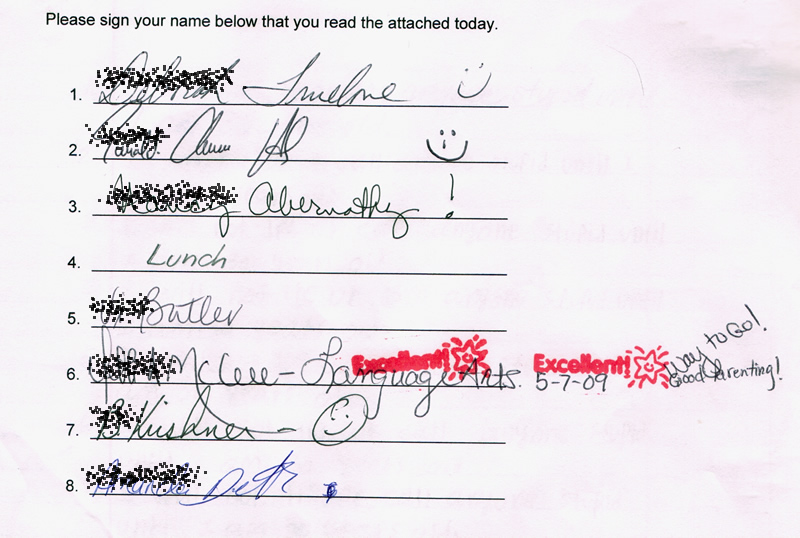 Please sign your name below that you read the attached today.
1. Truelove
2.
3. Abernathy !
4. Lunch
5. Butler
6. McCue - Language Arts. Excellent! Excellent! 5-7-09 Way to Go! Good Parenting!
7. B Kirshner -
8.